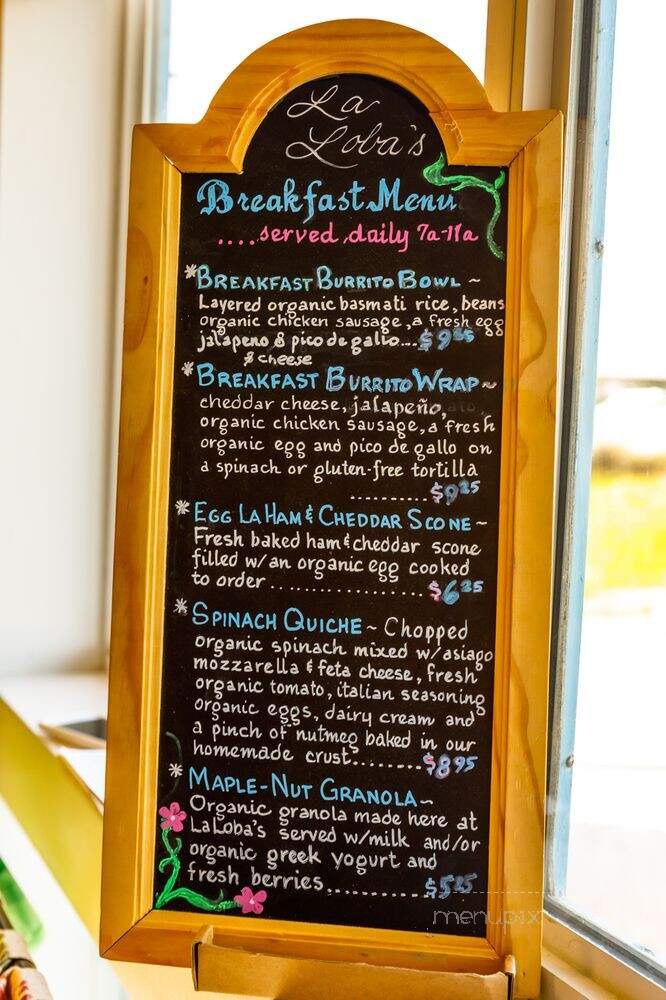 La
Loba's
Breakfast Menu
....served daily 7a-11a
*BREAKFAST BURRITO BOWL ~
Layered organic basmati rice, beans
organic chicken sausage, a fresh egg
jalapeno & pico de gallo... $9.25
& cheese
*BREAKFAST BURRITO WRAP ~
cheddar cheese, jalapeño,
organic chicken sausage, a fresh
organic egg and pico de gallo on
a spinach or gluten-free tortilla
.......... $9.25
*EGG LA HAM & CHEDDAR SCONE ~
Fresh baked ham & cheddar scone
filled w/an organic egg cooked
to order .................... $6.25
*SPINACH QUICHE ~ Chopped
organic spinach mixed w/asiago
mozzarella & feta cheese, fresh
organic tomato, italian seasoning
organic eggs, dairy cream and
a pinch of nutmeg baked in our
homemade crust........ $8.95
*MAPLE-NUT GRANOLA ~
Organic granola made here at
LaLoba's served w/milk and/or
organic greek yogurt and
fresh berries............ $5.25
menupix